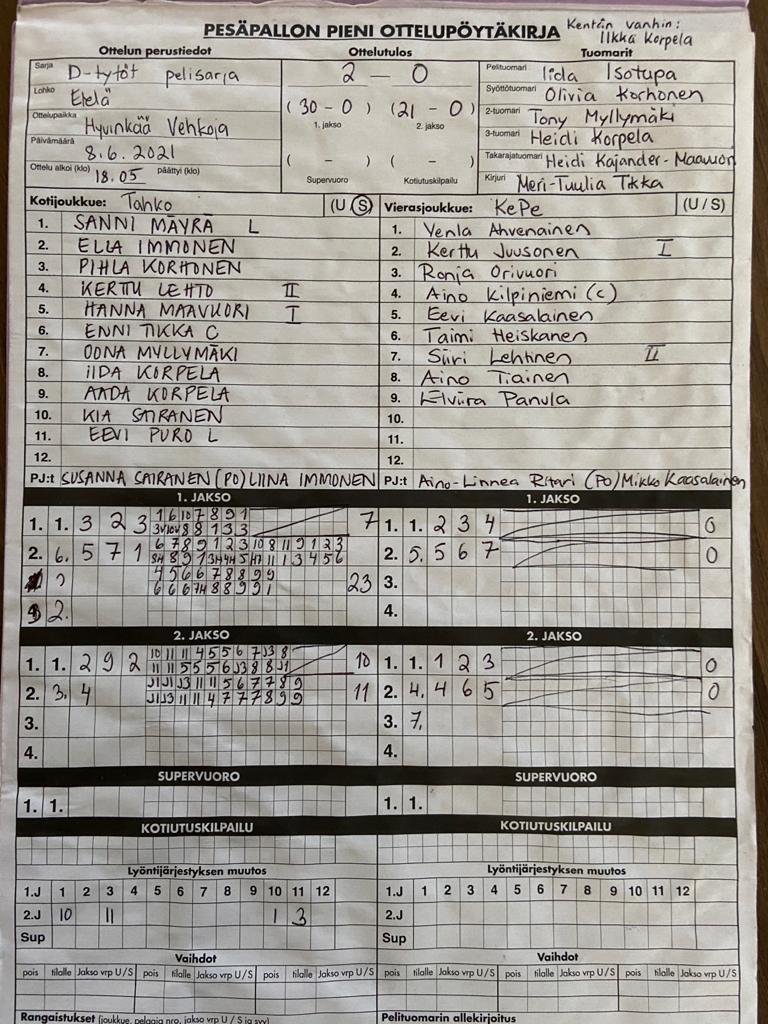 PESÄPALLON PIENI OTTELUPÖYTÄKIRJA
Kentän vanhin:
Ilkka Korpela
Ottelun perustiedot
Ottelutulos
Tuomarit
Sarja D-tytöt pelisarja
Lohko Etelä
Ottelupaikka Hyvinkää Vehkoja
Päivämäärä 8.6.2021
Ottelu alkoi (klo) 18.05 päättyi (klo)
2 – 0
(30 – 0) (21 – 0)
1. jakso 2. jakso
( – ) ( – )
Supervuoro Kotiutuskilpailu
Pelituomari Iida Isotupa
Syöttötuomari Olivia Korhonen
2-tuomari Tony Myllymäki
3-tuomari Heidi Korpela
Takarajatuomari Heidi Kajander-Maavuori
Kirjuri Meri-Tuulia Tikka
Kotijoukkue: Tahko (U/S)
1. SANNI MÄYRÄ L
2. ELLA IMMONEN
3. PIHLA KORHONEN
4. KERTTU LEHTO II
5. HANNA MAAVUORI I
6. ENNI TIKKA C
7. OONA MYLLYMÄKI
8. IIDA KORPELA
9. AADA KORPELA
10. KIA SAIRANEN
11. EEVI PURO L
12.
PJ:t SUSANNA SAIRANEN (PO) LIINA IMMONEN
Vierasjoukkue: KePe (U/S)
1. Venla Ahvenainen
2. Kerttu Juusonen I
3. Ronja Orivuori
4. Aino Kilpiniemi (c)
5. Eevi Kaasalainen
6. Taimi Heiskanen
7. Siiri Lehtinen II
8. Aino Tiainen
9. Elviira Panula
10.
11.
12.
PJ:t Aino-Linnea Ritari (PO) Mikko Kaasalainen
1. JAKSO
1. 1. 3 2 3
1 6 10 7 8 9 1
7
2. 6. 5 7 1
6 7 8 9 1 2 3 10 8 11 9 1 2 3
4 5 6 6 7 8 8 9 9
23
2.
1. JAKSO
1. 1. 2 3 4 0
2. 5. 5 6 7 0
3.
4.
2. JAKSO
1. 1. 2 9 2
10 11 11 4 5 5 6 7 J3 8
11 11 5 5 5 6 J3 8 8 J1
10
2. 3. 4
J1 J1 J3 11 11 5 6 7 7 8 9
J1 J3 11 11 4 7 7 7 8 9 9
11
3.
4.
2. JAKSO
1. 1. 1 2 3 0
2. 4. 4 6 5 0
3. 7.
4.
SUPERVUORO
1. 1.
SUPERVUORO
1. 1.
KOTIUTUSKILPAILU
KOTIUTUSKILPAILU
Lyöntijärjestyksen muutos
1.J 1 2 3 4 5 6 7 8 9 10 11 12
2.J 10 11 1 3
Sup
Lyöntijärjestyksen muutos
1.J 1 2 3 4 5 6 7 8 9 10 11 12
2.J
Sup
Vaihdot
pois tilalle Jakso vrp U/S pois tilalle Jakso vrp U/S pois tilalle Jakso vrp U/S
Vaihdot
pois tilalle Jakso vrp U/S pois tilalle Jakso vrp U/S pois tilalle Jakso vrp U/S
Rangaistukset (joukkue, pelaaja nro, jakso vrp U/S ja syy)
Pelituomarin allekirjoitus